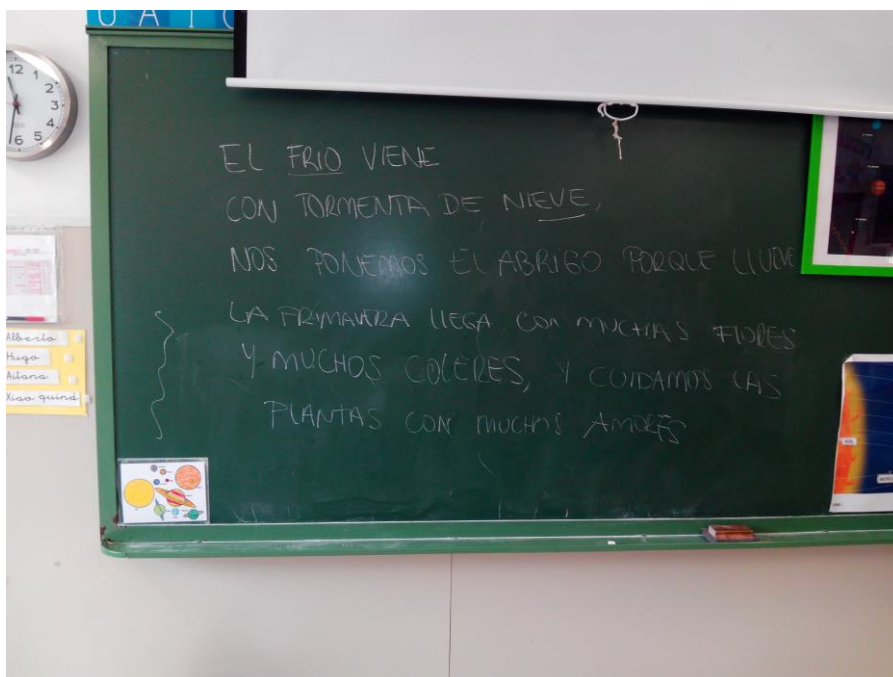 U A I O
12
1
2
3
4
5
6
EL FRIO VIENE
CON TORMENTA DE NIEVE,
NOS PONEMOS EL ABRIGO PORQUE LLUEVE
LA PRIMAVERA LLEGA CON MUCHAS FLORES
Y MUCHOS COLORES, Y CUIDAMOS LAS
PLANTAS CON MUCHOS AMORES
Alberto
Hugo
Aitana
Xiao quind